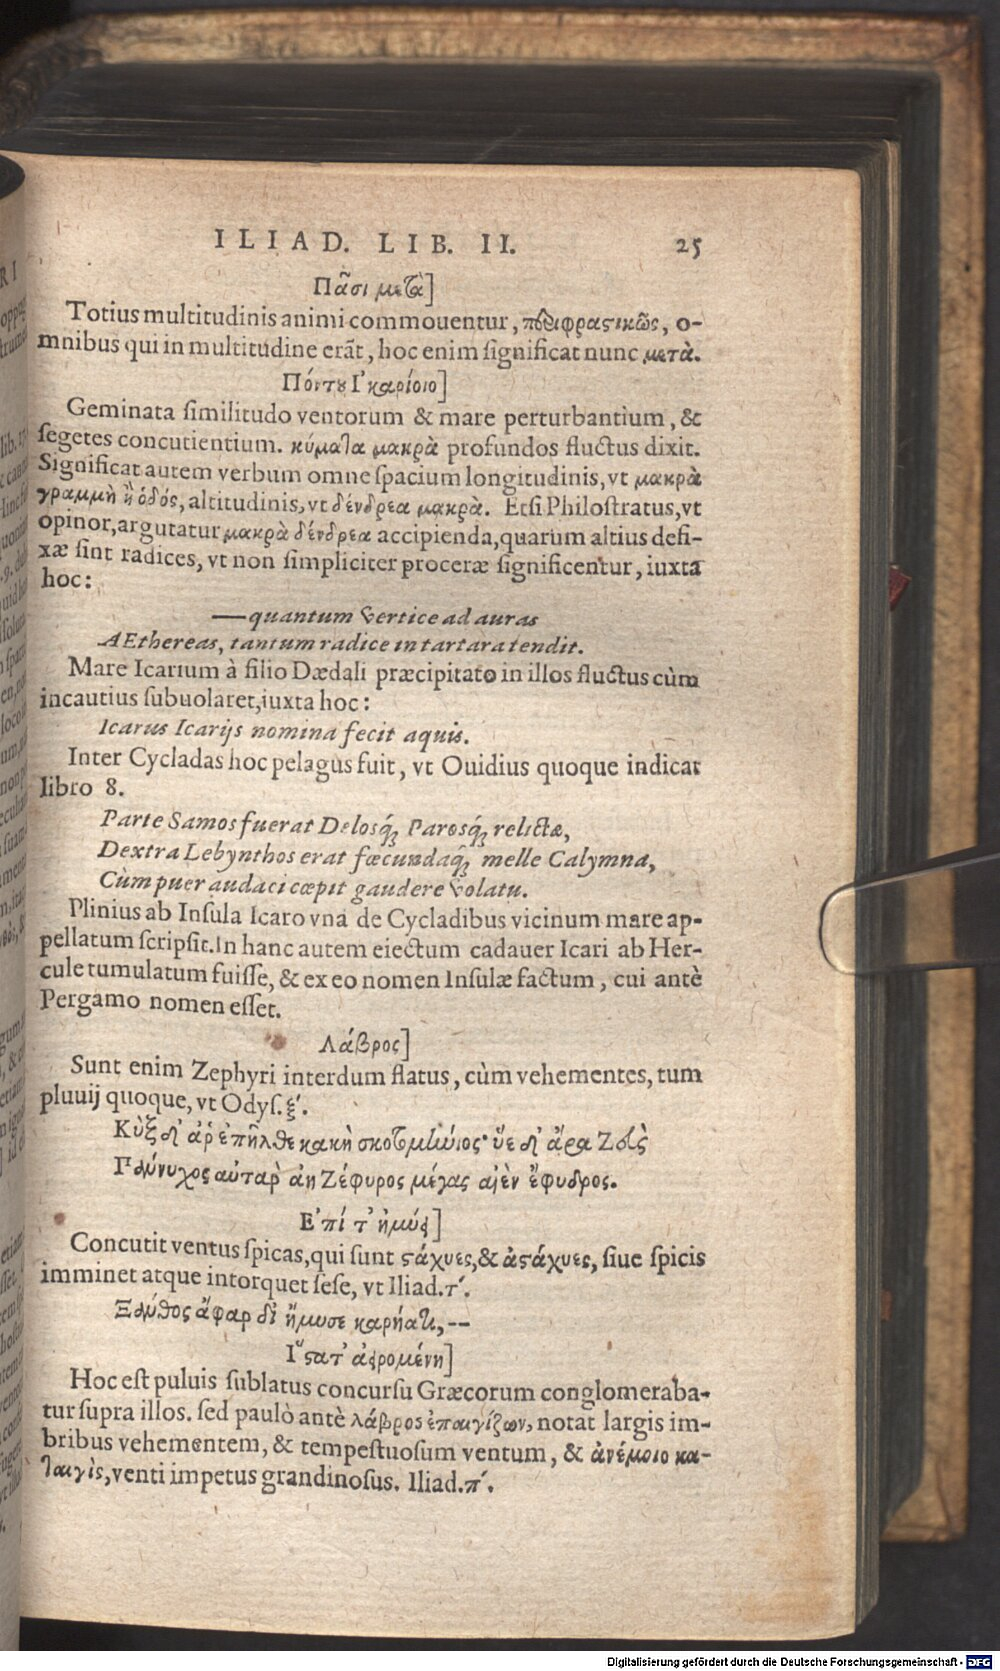 ILIAD. LIB. II. 25
Πᾶσι μετὰ]
Totius multitudinis animi commouentur, περιφραστικῶς, o-
mnibus qui in multitudine erāt, hoc enim ſignificat nunc μετὰ.
Πόντου Ἰκαρίοιο]
Geminata ſimilitudo ventorum & mare perturbantium, &
ſegetes concutientium. κύματα μακρὰ profundos fluctus dixit.
Significat autem verbum omne ſpacium longitudinis, vt μακρὰ
γραμμὴ ἢ ὁδός, altitudinis, vt δένδρεα μακρὰ. Etſi Philoſtratus, vt
opinor, argutatur μακρὰ δένδρεα accipienda, quarum altius defi-
xæ ſint radices, vt non ſimpliciter proceræ ſignificentur, iuxta
hoc:
—quantum vertice ad auras
AEthereas, tantum radice in tartara tendit.
Mare Icarium à filio Dædali præcipitato in illos fluctus cùm
incautius ſubuolaret, iuxta hoc:
Icarus Icarijs nomina fecit aquis.
Inter Cycladas hoc pelagus fuit, vt Ouidius quoque indicat
libro 8.
Parte Samos fuerat Delosq́; Parosq́; relictæ,
Dextra Lebynthos erat fœcundaq́; melle Calymna,
Cùm puer audaci cœpit gaudere volatu.
Plinius ab Inſula Icaro vna de Cycladibus vicinum mare ap-
pellatum ſcripſit. In hanc autem eiectum cadauer Icari ab Her-
cule tumulatum fuiſſe, & ex eo nomen Inſulæ factum, cui antè
Pergamo nomen eſſet.
Λάβρος]
Sunt enim Zephyri interdum flatus, cùm vehementes, tum
pluuij quoque, vt Odyſ. ξ´.
Νὺξ δ' ἄρ' ἐπῆλθε κακὴ σκοτομήνιος· ὗε δ' ἄρα Ζεὺς
Πάννυχος αὐτὰρ ἄη Ζέφυρος μέγας αἰὲν ἔφυδρος.
Ἐπί τ' ἠμύει]
Concutit ventus ſpicas, qui ſunt στάχυες, & ἀστάχυες, ſiue ſpicis
imminet atque intorquet ſeſe, vt Iliad. τ´.
Ξάνθος ἄφαρ δ' ἤμυσε καρήατι, --
Ἵστατ' ἀειρομένη]
Hoc eſt puluis ſublatus concurſu Græcorum conglomeraba-
tur ſupra illos. ſed paulò antè λάβρος ἐπαιγίζων, notat largis im-
bribus vehementem, & tempeſtuoſum ventum, & ἀνέμοιο κα-
ταιγὶς, venti impetus grandinoſus. Iliad. π´.
Digitalisierung gefördert durch die Deutsche Forschungsgemeinschaft - DFG